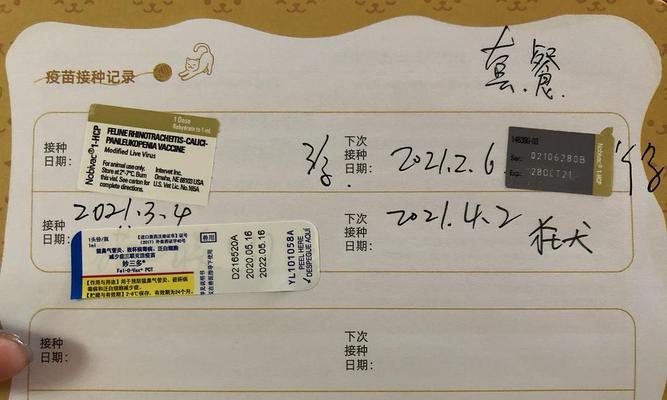 套餐
疫苗接种记录
1 Dose
Rehydrate to 1 ml
Nobivac® 1-HCP
FELINE RHINOTRACHEITIS-CALICI-
PANLEUKOPENIA VACCINE
Modified Live Virus
For animal use only.
Store at 2°-7°C. Burn
this vial. See carton for
complete directions.
Intervet Inc.
Omaha, NE 68103 USA
U.S. Vet. Lic. No. 165A
接种
日期:
下次
接种
日期:
2021.2.6
Ser: 02106280B
Exp: 28OCT21
Nobivac® 1-HCP
接种
日期:
2021.3.4
1头份/瓶
1ml
猫鼻气管炎、嵌杯病毒病、泛白细胞
减少症三联灭活疫苗
妙三多®
Fel-O-Vax® PCT
【作用与用途】用于预防猫鼻气管炎、嵌杯病
毒病和泛白细胞减少症。
【贮藏与有效期】2-8℃保存,有效期为24个月。
兽用
D216520A
2020.05.16
2022.05.16
YL101058A
PEEL HERE
DESPEGUE AQUÍ
下次
接种
日期:
2021.4.2
狂犬
接种
日期:
下次
接种
日期: